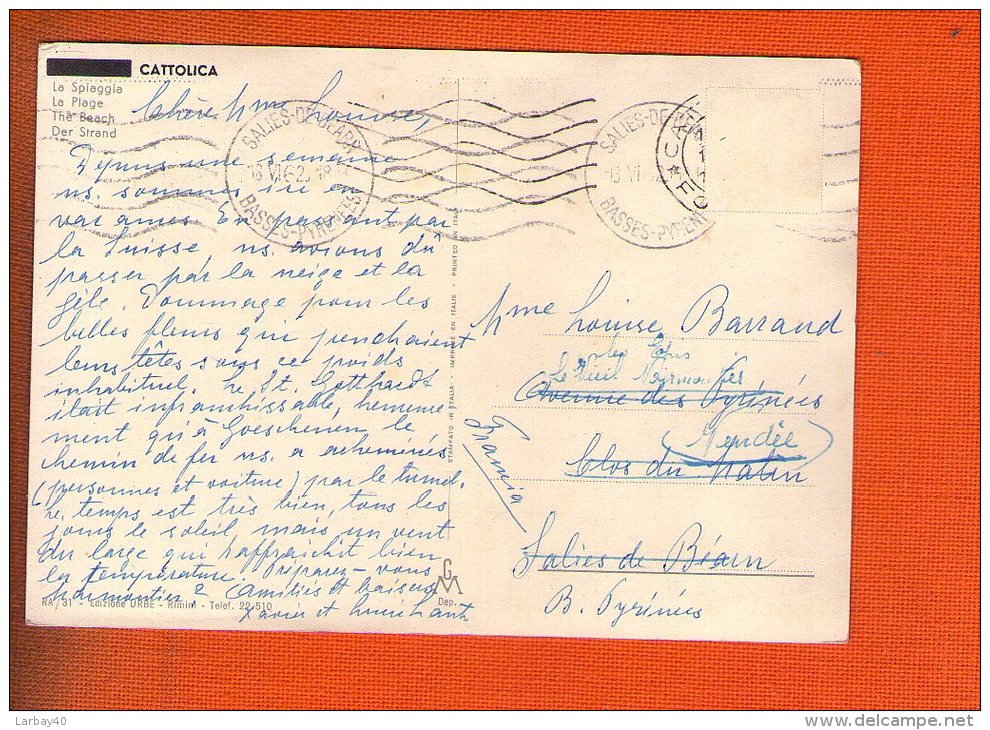 CATTOLICA
La Spiaggia
La Plage
The Beach
Der Strand
Chère Mme Louise,
Depuis une semaine
ns. sommes ici en
vacances. En passant par
la Suisse ns. avions dû
passer par la neige et la
gèle. Dommage pour les
belles fleurs qui penchaient
leurs têtes sous ce poids
inhabituel. Le St. Gotthardt
était infranchissable, heureuse
ment qu'à Goeschenen le
chemin de fer ns. a acheminés
(personnes et voiture) par le tunnel.
Le temps est très bien, tous les
jours le soleil, mais un vent
du large qui raffraichit bien
la température. Préparez-vous
Noirmoutier? Amitiés et baisers
Xavier et
RA/31 - Edizione ORBE - Rimini - Telef. 22.510
STAMPATO IN ITALIA - IMPRIMÉ EN ITALIE - PRINTED IN ITALY
G
M
Dep.
SALIES-DE-BEARN
18 H
BASSES-PYRENEES
SALIES-DE-BEARN
BASSES-PYRENEES
Mme Louise Barraud
Le Vieil Noirmoutier
Avenue des Pyrénées
(Vendée)
Clos du Matin
Francia
Salies de Béarn
B. Pyrénées
Larbay40
www.delcampe.net